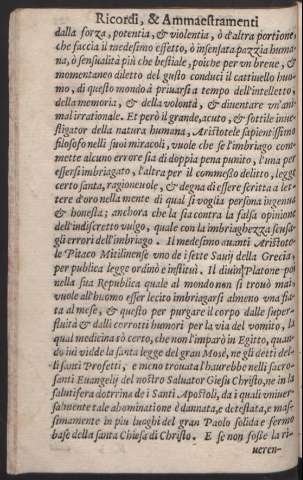 Ricordi, & Ammaestramenti
dalla forza, potentia, & violentia, ò d'altra portione,
che faccia il medesimo effetto, ò insensata pazzia huma
na, ò sensualità più che bestiale, poiche per vn breue, &
momentaneo diletto del gusto conduci il cattiuello huo
mo, di questo mondo à priuarsi a tempo dell'intelletto,
della memoria, & della volontà, & diuentare vn'ani
mal irrationale. Et però il grande, acuto, & sottile inue
stigator della natura humana, Aristotele sapientissimo
filosofo nelli suoi miracoli, vuole che se l'imbriago com
mette alcuno errore sia di doppia pena punito, l'una per
essersi imbriagato, l'altra per il commesso delitto, legge
certo santa, ragioneuole, & degna di essere scritta a let=
tere d'oro nella mente di qual si voglia persona ingenua
& honesta; anchora che la sia contra la falsa opinione
dell'indiscretto vulgo, quale con la imbriaghezza scusa
gli errori dell'imbriago. Il medesimo auanti Aristote
le Pitaco Mitilinense vno de i sette Sauij della Grecia,
per publica legge ordinò e instituì. Il diuin Platone poi
nella sua Republica quale al mondo non si trouò mai,
vuole all'huomo esser lecito imbriagarsi almeno vna fia
ta al mese, & questo per purgare il corpo dalle super-
fluità & dalli corrotti humori per la via del vomito, la
qual medicina sò certo, che non l'imparò in Egitto, quan
do iui vidde la santa legge del gran Mosè, ne gli detti del-
li santi Profetti, e meno trouata l'haurebbe nelli sacro-
santi Euangelij del nostro Saluator Giesu Christo, ne in la
salutifera dottrina de i Santi Apostoli, da i quali vniuer
salmente tale abominatione è dannata, e detestata, e mas
simamente in piu luoghi del gran Paolo solida e fermo
base della santa Chiesa di Christo. E se non fosse la ri-
ueren-